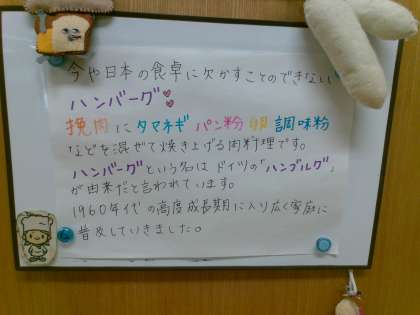 今や日本の食卓に欠かすことのできない
ハンバーグ♡
挽肉にタマネギ パン粉 卵 調味粉
などを混ぜて焼き上げる肉料理です。
ハンバーグという名はドイツの「ハンブルグ」
が由来だと言われています。
1960年代の高度成長期に入り広く家庭に
普及していきました。